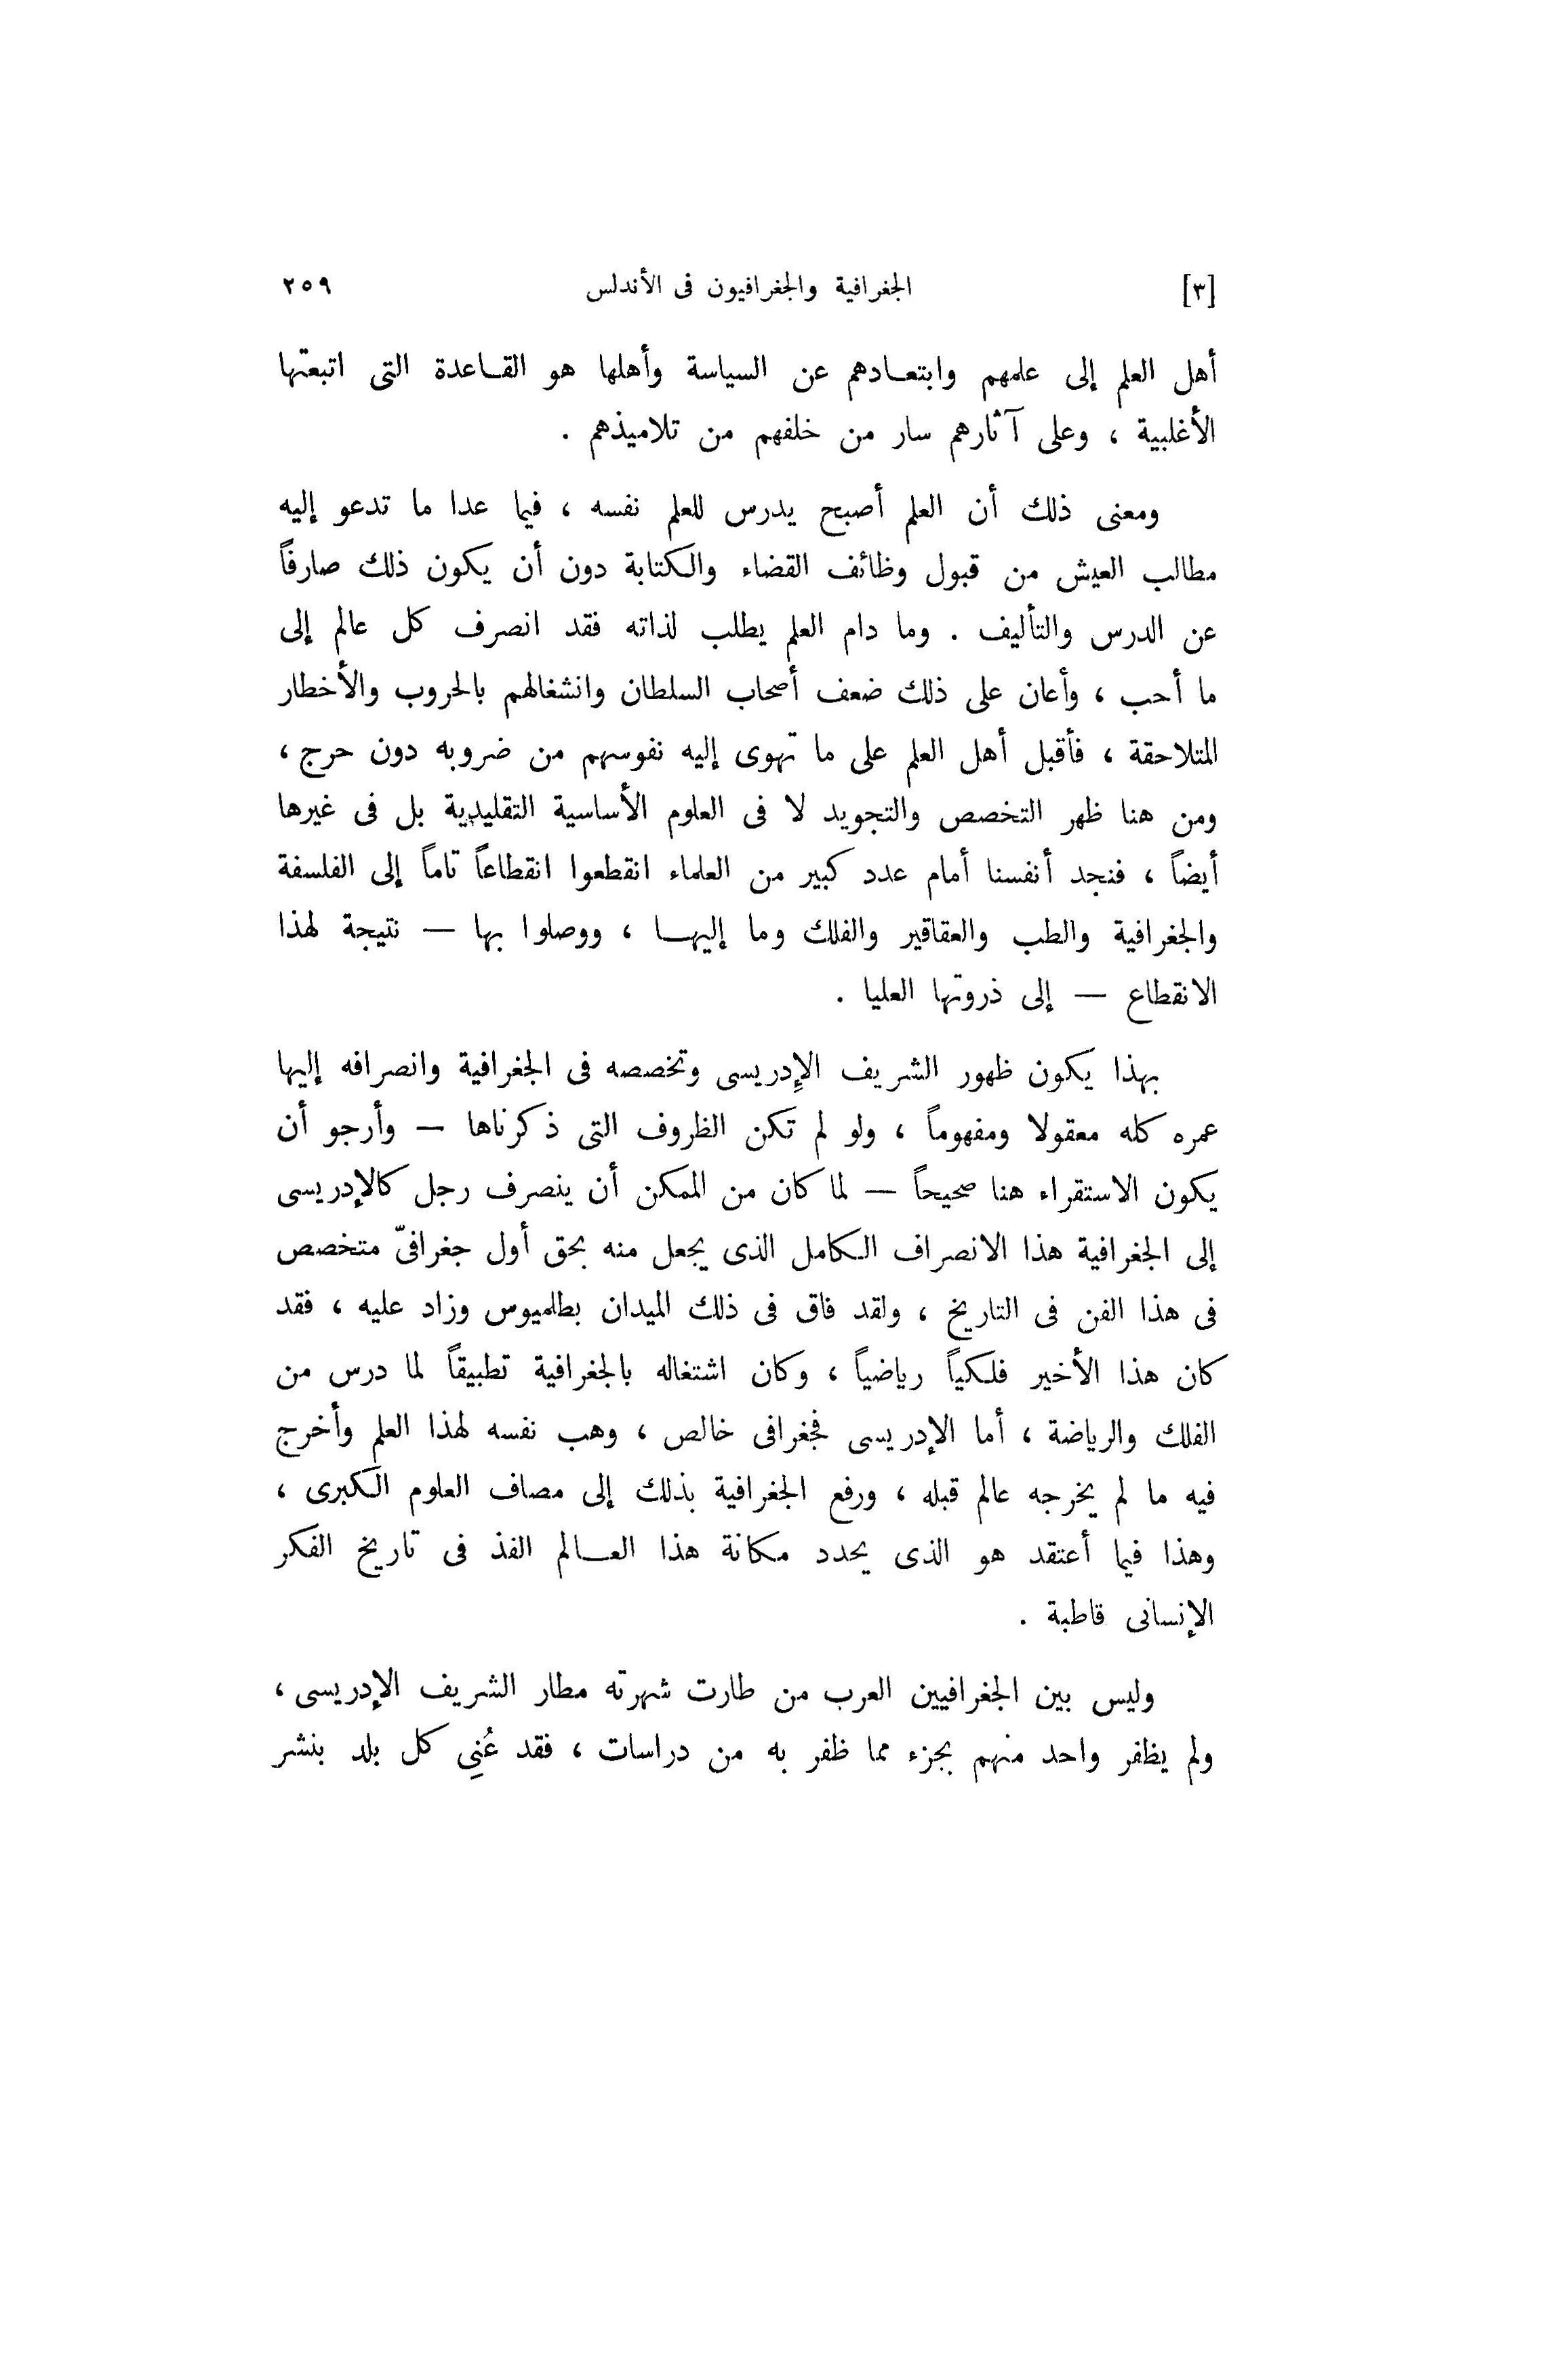 [٣] الجغرافية والجغرافيون فى الأندلس ٢٥٩
أهل العلم إلى علمهم وابتعادهم عن السياسة وأهلها هو القاعدة التى اتبعتها
الأغلبية ، وعلى آثارهم سار من خلفهم من تلاميذهم .
ومعنى ذلك أن العلم أصبح يدرس للعلم نفسه ، فيما عدا ما تدعو إليه
مطالب العيش من قبول وظائف القضاء والكتابة دون أن يكون ذلك صارفاً
عن الدرس والتأليف . وما دام العلم يطلب لذاته فقد انصرف كل عالم إلى
ما أحب ، وأعان على ذلك ضعف أصحاب السلطان وانشغالهم بالحروب والأخطار
المتلاحقة ، فأقبل أهل العلم على ما تهوى إليه نفوسهم من ضروبه دون حرج ،
ومن هنا ظهر التخصص والتجويد لا فى العلوم الأساسية التقليدية بل فى غيرها
أيضاً ، فنجد أنفسنا أمام عدد كبير من العلماء انقطعوا انقطاعاً تاماً إلى الفلسفة
والجغرافية والطب والعقاقير والفلك وما إليها ، ووصلوا بها — نتيجة لهذا
الانقطاع — إلى ذروتها العليا .
بهذا يكون ظهور الشريف الإدريسى وتخصصه فى الجغرافية وانصرافه إليها
عمره كله معقولا ومفهوماً ، ولو لم تكن الظروف التى ذكرناها — وأرجو أن
يكون الاستقراء هنا صحيحاً — لما كان من الممكن أن ينصرف رجل كالإدريسى
إلى الجغرافية هذا الانصراف الكامل الذى يجعل منه بحق أول جغرافىّ متخصص
فى هذا الفن فى التاريخ ، ولقد فاق فى ذلك الميدان بطلميوس وزاد عليه ، فقد
كان هذا الأخير فلكياً رياضياً ، وكان اشتغاله بالجغرافية تطبيقاً لما درس من
الفلك والرياضة ، أما الإدريسى فجغرافى خالص ، وهب نفسه لهذا العلم وأخرج
فيه ما لم يخرجه عالم قبله ، ورفع الجغرافية بذلك إلى مصاف العلوم الكبرى ،
وهذا فيما أعتقد هو الذى يحدد مكانة هذا العالم الفذ فى تاريخ الفكر
الإنسانى قاطبة .
وليس بين الجغرافيين العرب من طارت شهرته مطار الشريف الإدريسى ،
ولم يظفر واحد منهم بجزء مما ظفر به من دراسات ، فقد عُنِى كل بلد بنشر